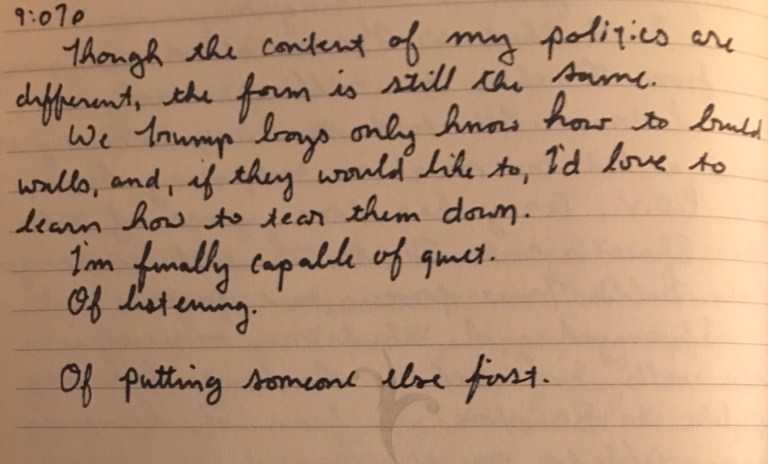 9:07p
Though the content of my politics are
different, the form is still the same.
We Trump boys only know how to build
walls, and, if they would like to, I'd love to
learn how to tear them down.
I'm finally capable of quiet.
Of listening.
Of putting someone else first.